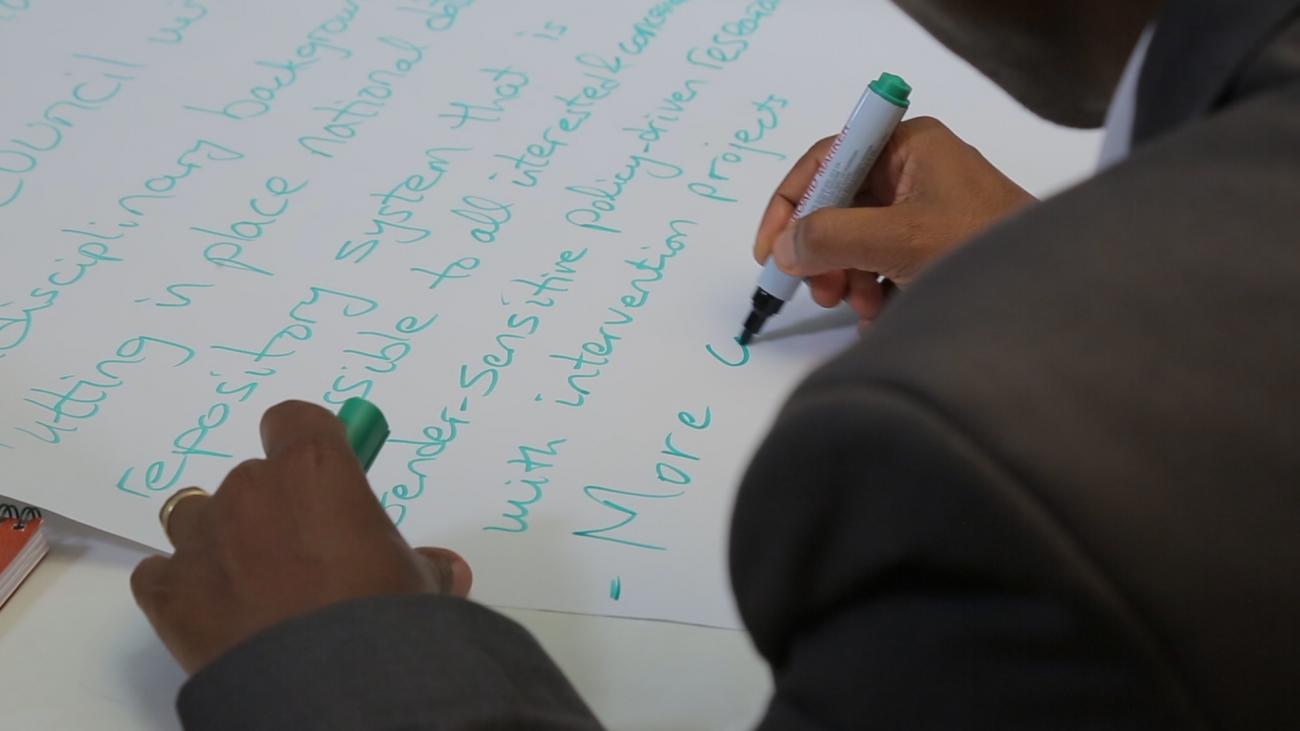 council
disciplinary
utting in place national
repository system that is
ssible to all interested &
gender-sensitive policy-driven research
with intervention projects
- More